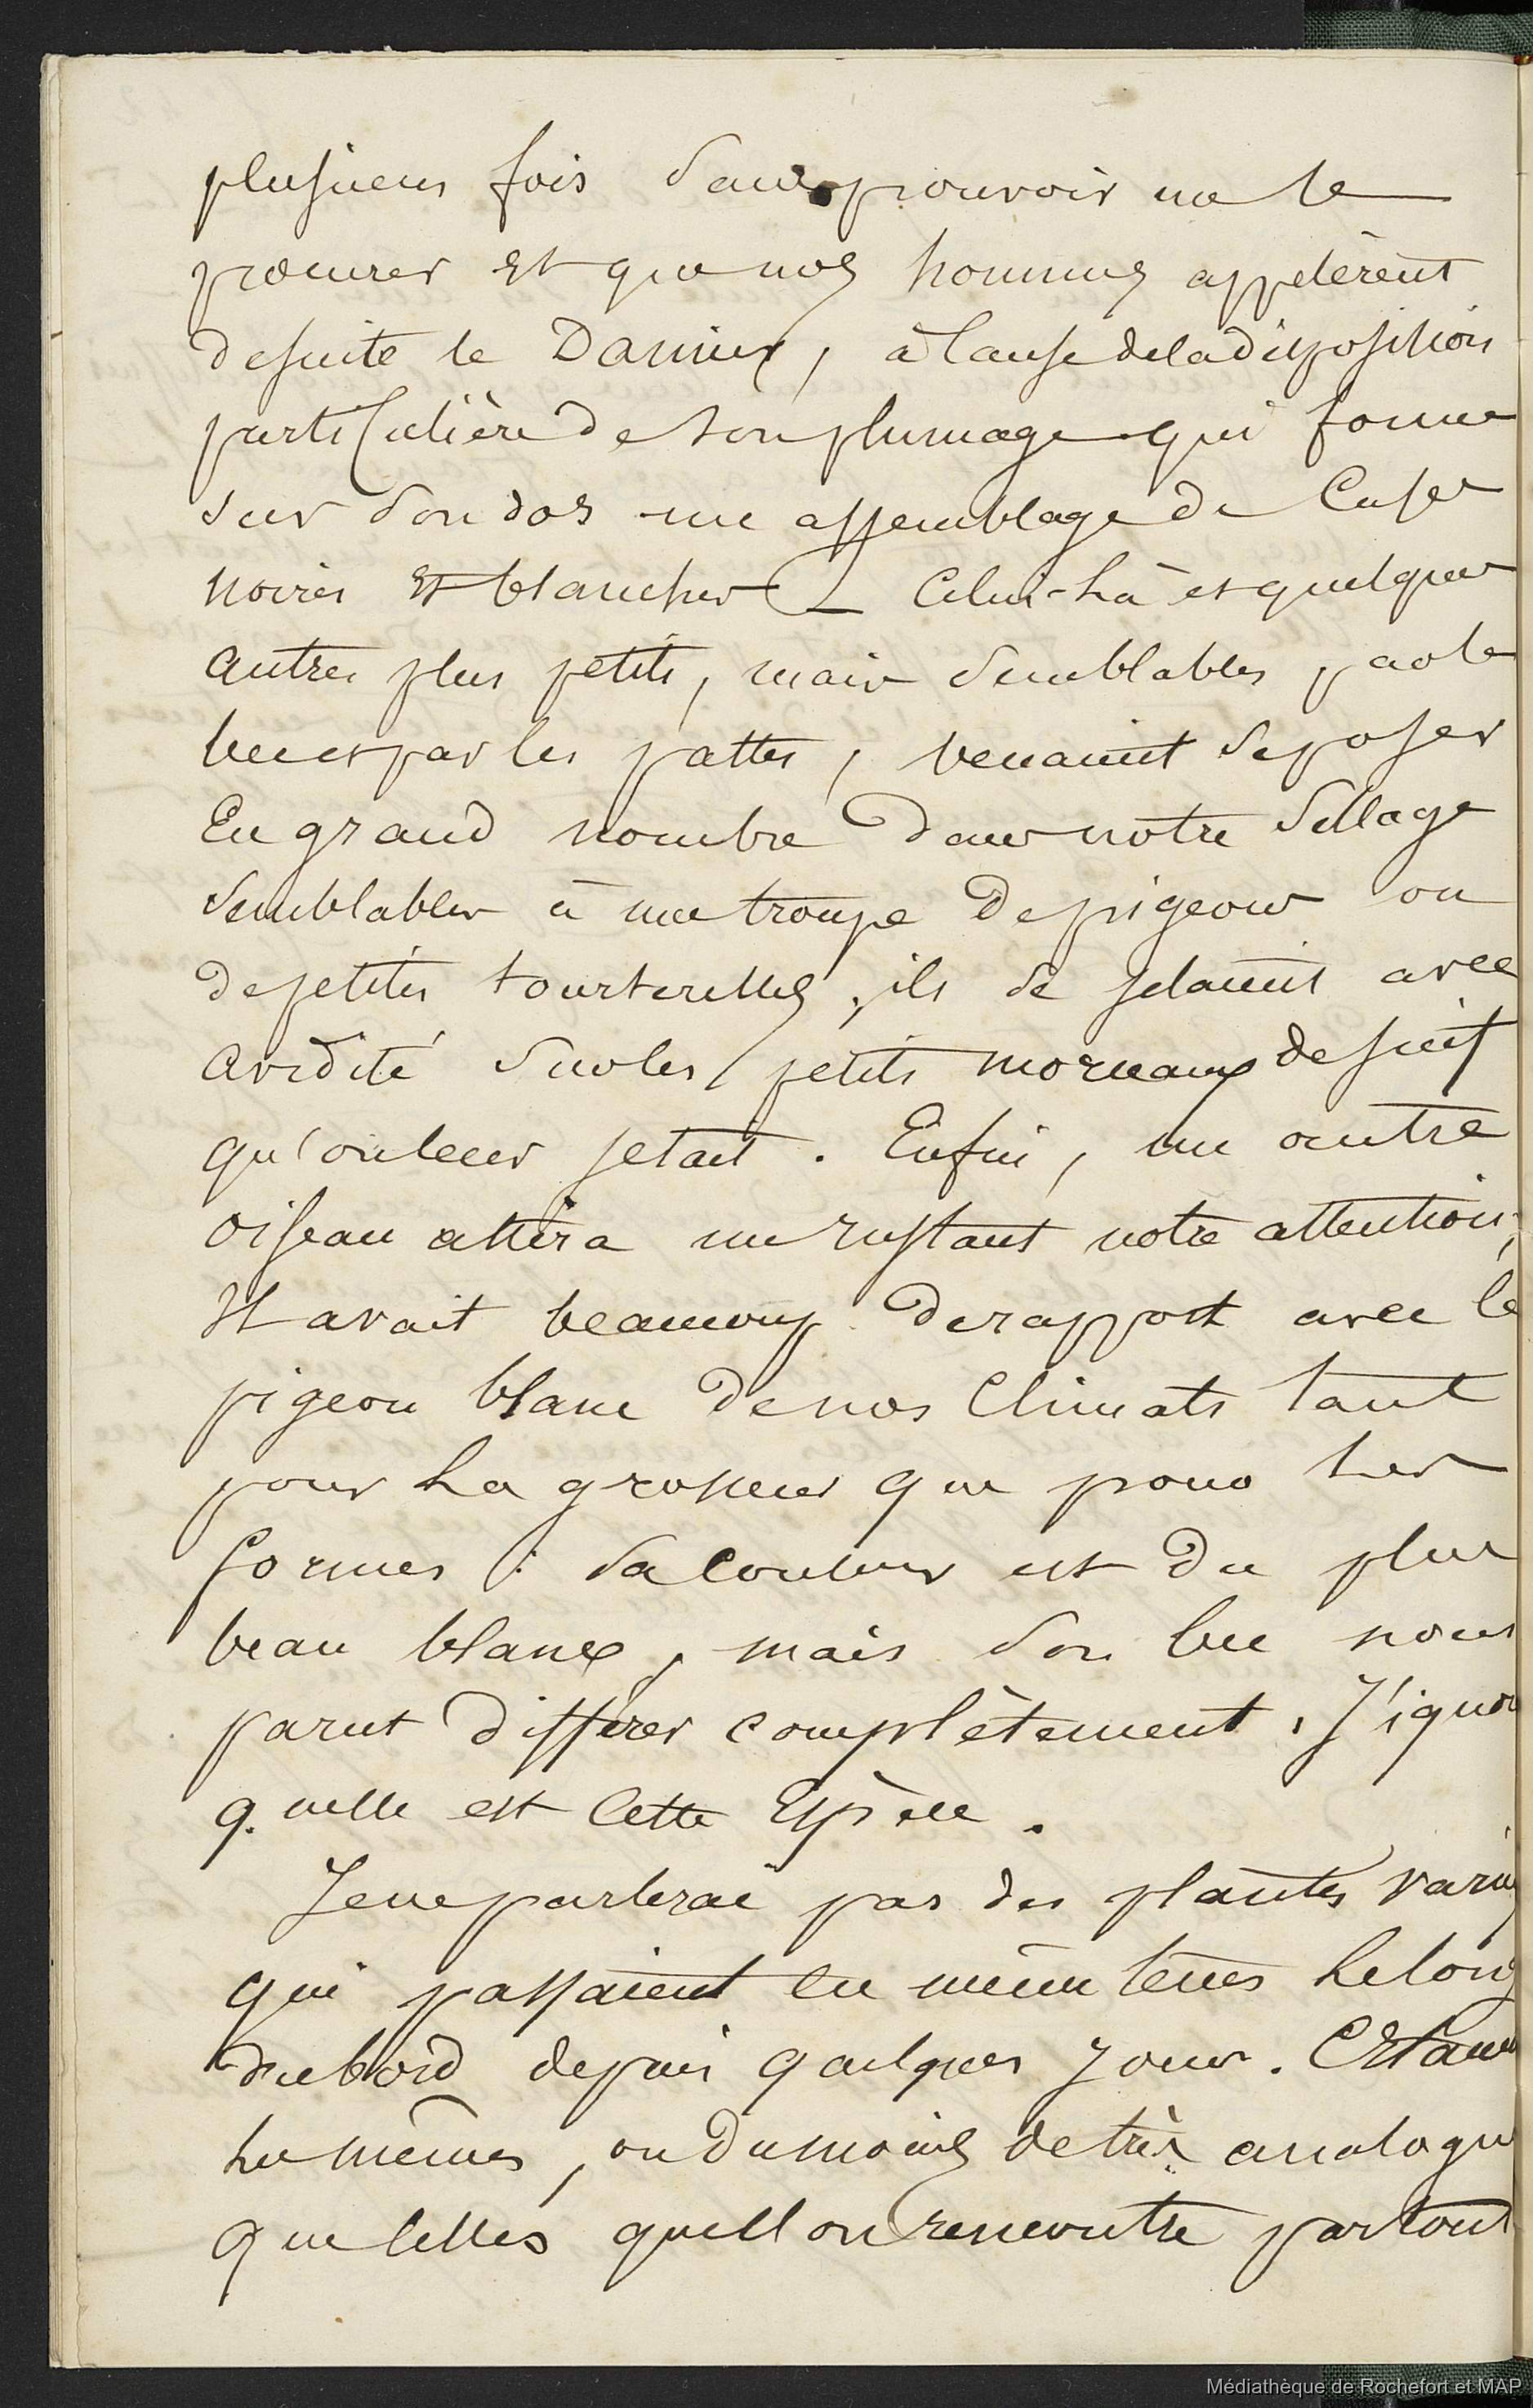 plusieurs fois sans pouvoir me le
procurer et que nos hommes appelèrent
desuite le Damier, à cause de la disposition
particulière de son plumage qui forme
sur son dos un assemblage de cases
noires et blanches. Celui-là et quelques
autres plus petits, mais semblables, par le
bec et par les pattes, venaient se poser
en grand nombre dans notre sillage
semblables à une troupe de pigeons ou
de petites tourterelles, ils se jetaient avec
avidité sur les petits morceaux de suif
qu'on leur jetait. Enfin, un autre
oiseau attira un instant notre attention;
Il avait beaucoup de rapport avec le
pigeon blanc de nos climats tant
pour la grosseur que pour les
formes : sa couleur est du plus
beau blanc, mais son bec nous
parut differer complètement. J'ignore
quelle est cette espèce.
Je ne parlerai pas des plantes
qui passaient en même tems le long
du bord depuis quelques jours. C'étaient
les mêmes, ou du moins de très analogues
que celles que l'on rencontre partout
Médiathèque de Rochefort et MAP